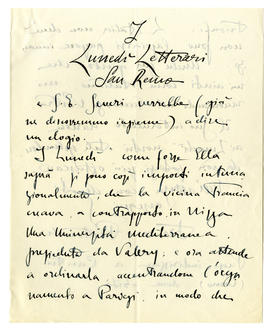 I
Lunedì Letterari
San Remo
e S.E. Severi verrebbe (già
ne discorremmo insieme) a dire
un elogio.
I Lunedì come forse Ella
saprà, si sono così imposti interna
zionalmente, che la vicina Francia
creava, a contrapposto, in Nizza
una università mediterranea
presieduta da Valery; e ora attende
a ordinarla, accentrandone l'orga
namento a Parigi, in modo che